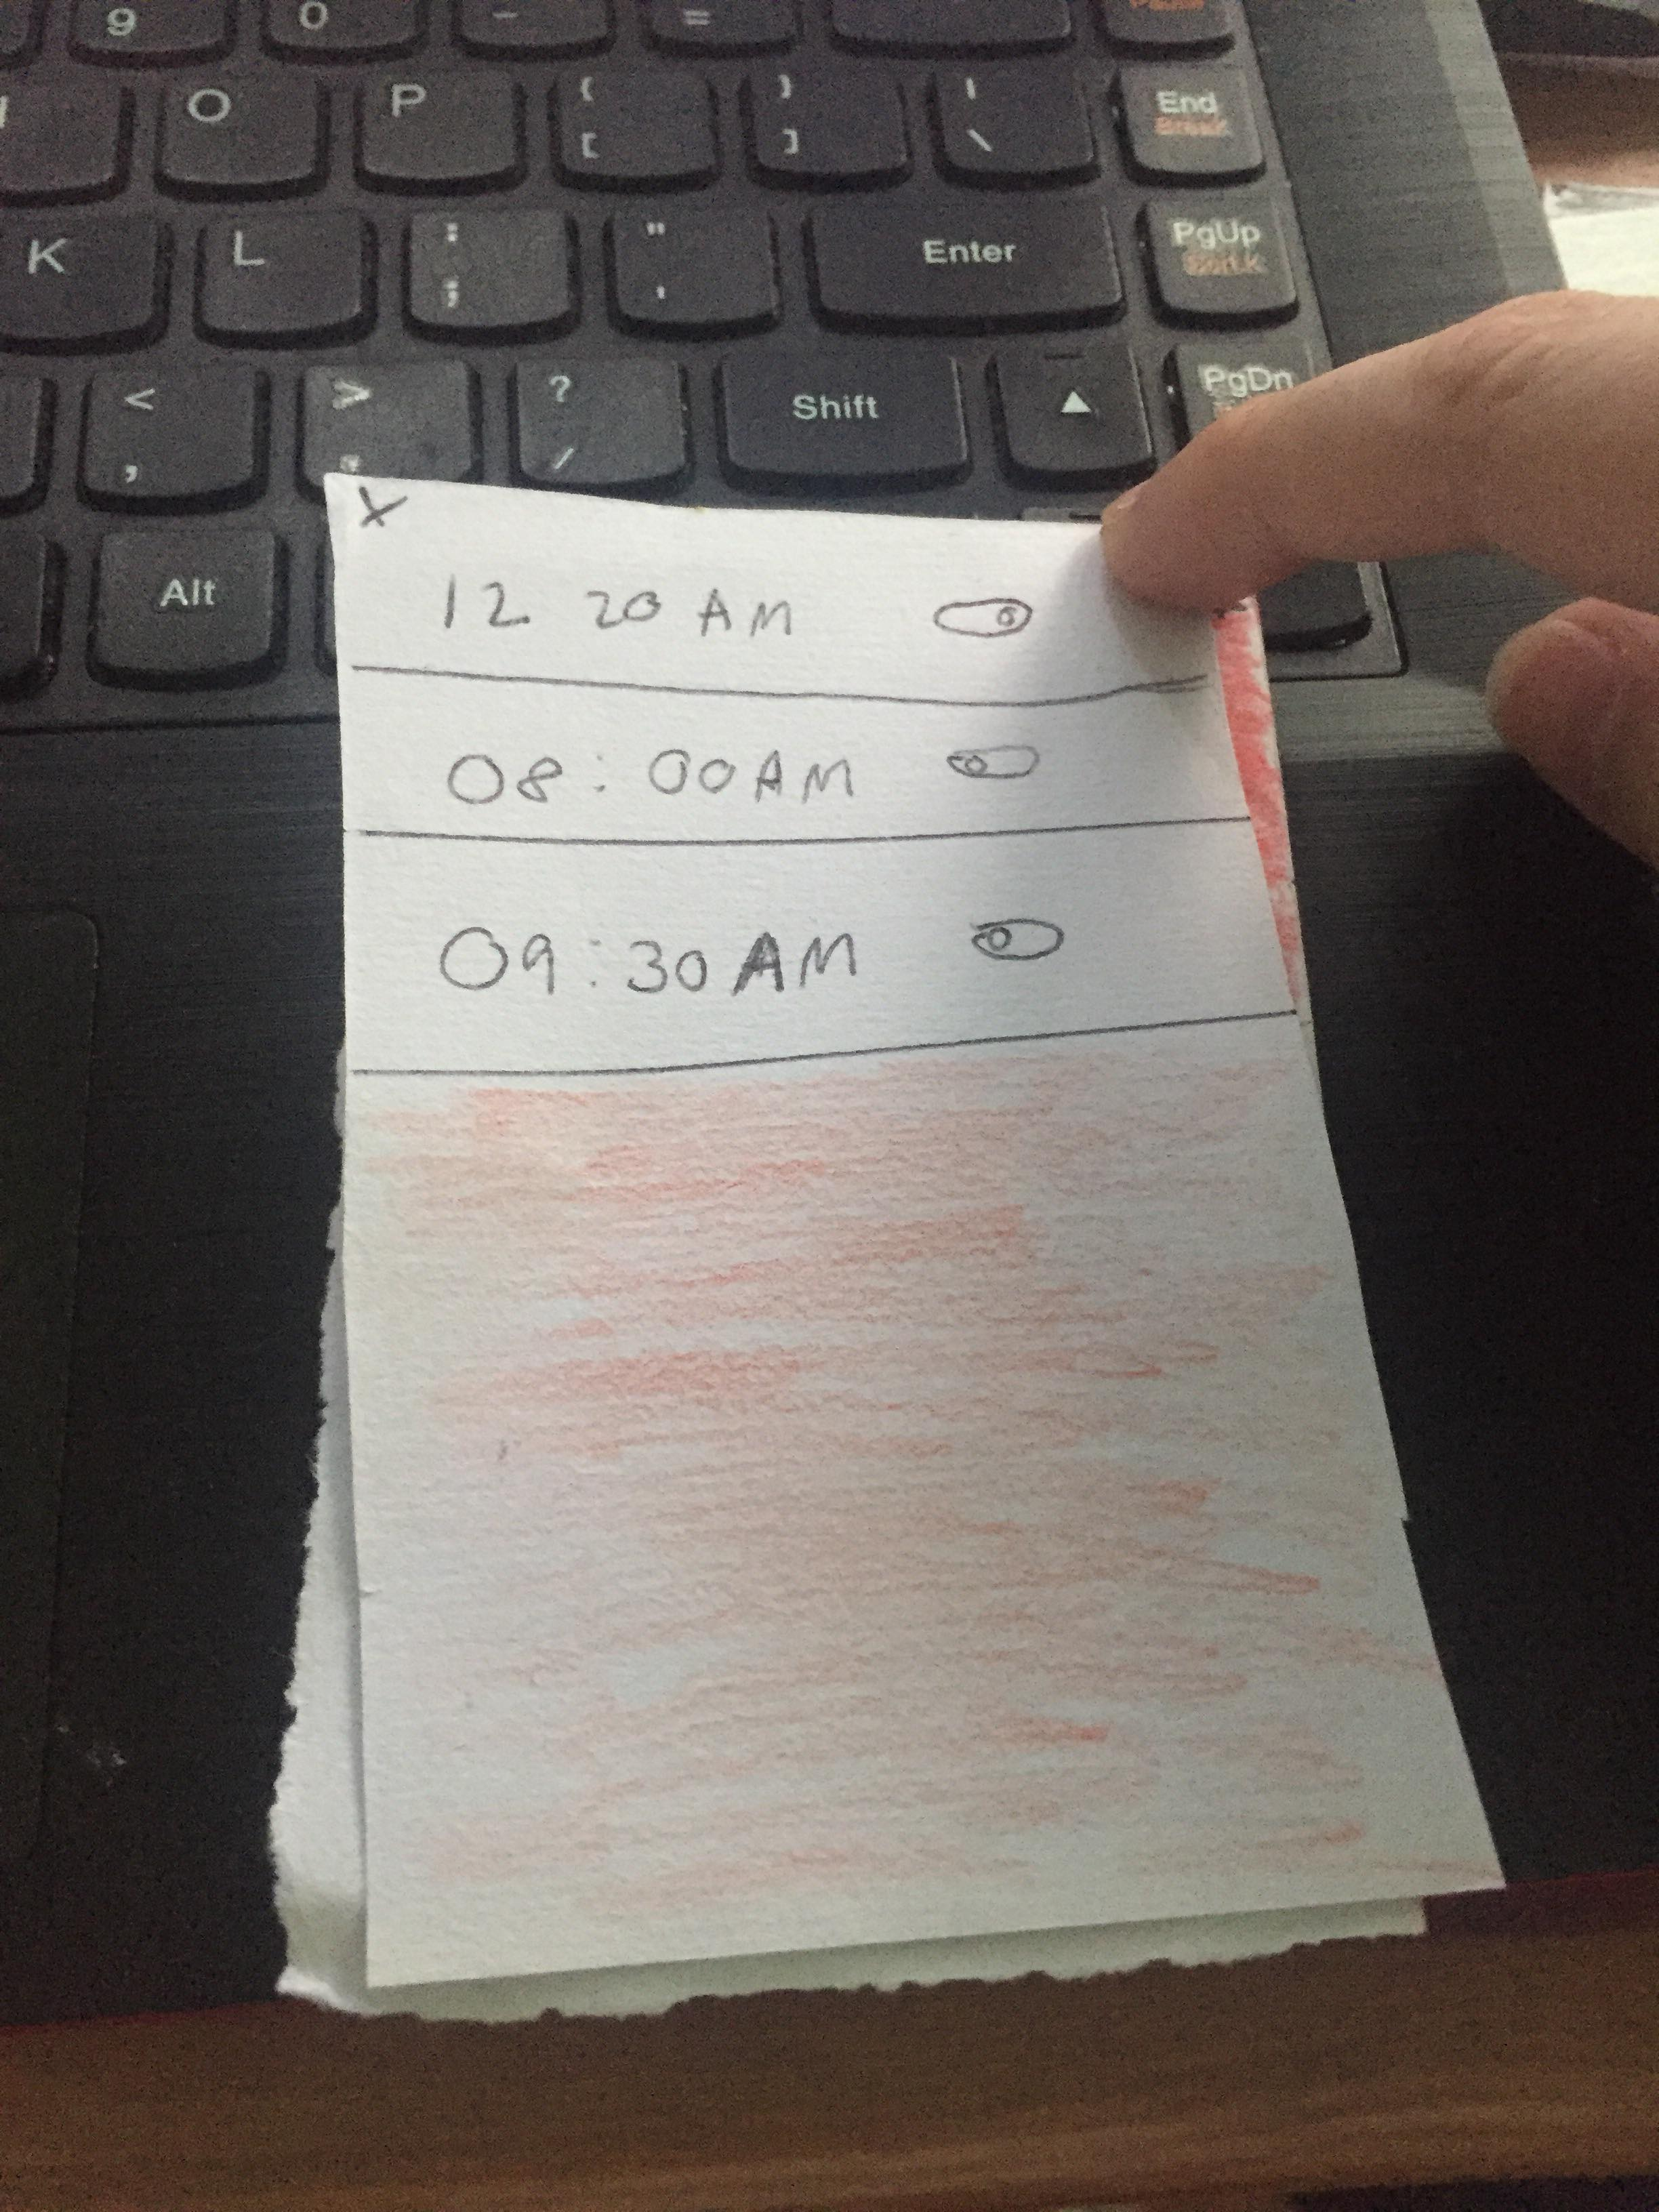 9 0 - =
Pause
O P { [ } ] | \ End
Break
K L : ; " ' Enter PgUp
< , > . ? / Shift ▲ PgDn
Alt
X
12 20 AM
08 : 00 AM
09 : 30 AM